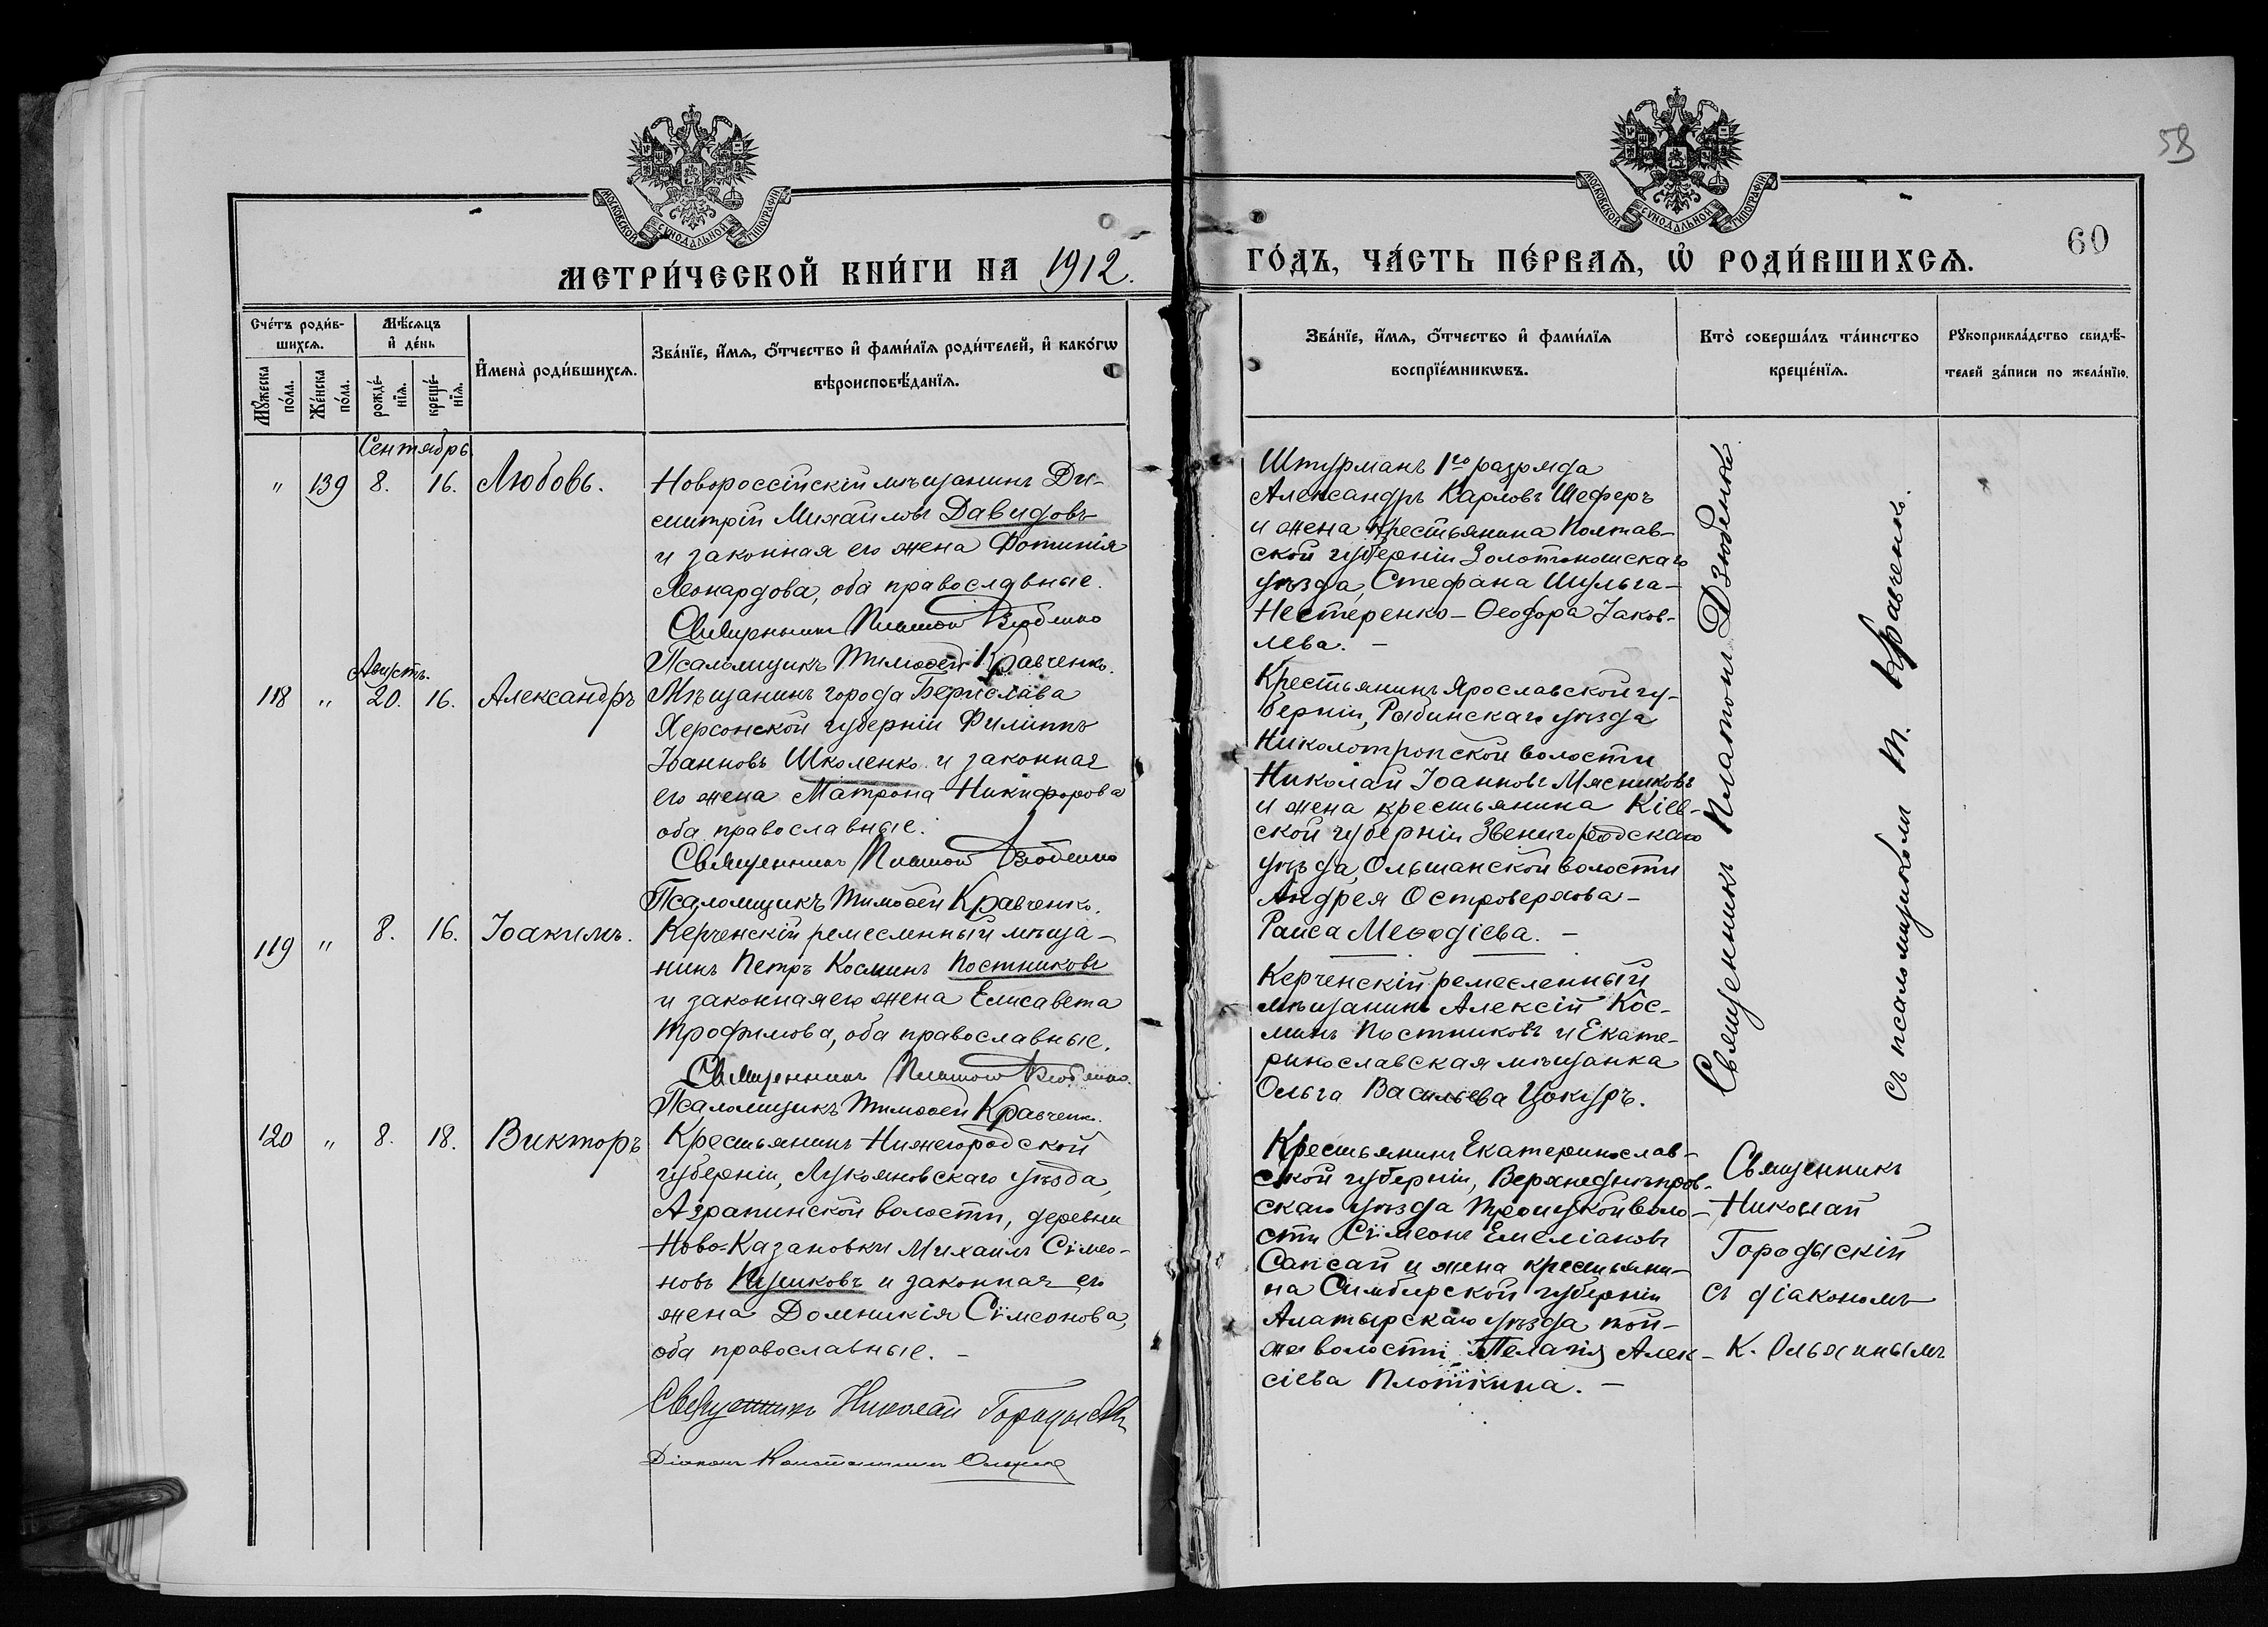 58
60
МОСКОВСКОЙ СѴНОДАЛЬНОЙ ТИПОГРАФІИ
МОСКОВСКОЙ СѴНОДАЛЬНОЙ ТИПОГРАФІИ
МЕТРИ́ЧЕСКОЙ КНИ́ГИ НА 1912.
ГО́ДЪ, ЧА́СТЬ ПЕ́РВАѦ, Ѡ҆ РОДИ́ВШИХСѦ.
Сче́тъ роди́в-
шихсѧ.
Мꙋ́жеска по́ла.
Же́нска по́ла.
Мѣ́сѧцъ
и҆ де́нь
рожде́-
нїѧ.
креще́-
нїѧ.
И҆мена̀ роди́вшихсѧ.
Зва́нїе, и҆́мѧ, ѻ҆́тчество и҆ фами́лїѧ роди́телей, и҆ како́гѡ
вѣроисповѣ́данїѧ.
Зва́нїе, и҆́мѧ, ѻ҆́тчество и҆ фами́лїѧ
воспрїе́мникѡвъ.
Кто̀ соверша́лъ та́инство
креще́нїѧ.
Рꙋкоприкла́дство свидѣ́-
телей за́писи по жела́нїю.
Сентябрь.
" 139 8. 16. Любовь.
Новороссійскій мѣщанинъ Ди-
митрій Михаиловъ Давидовъ
и законная его жена Фотинія
Леонардова, оба православные.
Священникъ Платонъ Дзюбенко
Псаломщикъ Тимоѳей Кравченко.
Штурманъ 1го разряда
Александръ Карловъ Шеферъ
и жена крестьянина Полтав-
ской губерніи Золотоношскаго
уѣзда, Стефана Шульга-
Нестеренко - Ѳеодора Іаков-
лева. -
Августъ.
118 " 20. 16. Александръ
Мѣщанинъ города Берислава
Херсонской губерніи Филиппъ
Іоанновъ Школенко и законная
его жена Матрона Никифорова
оба православные.
Священникъ Платонъ Дзюбенко
Псаломщикъ Тимоѳей Кравченко.
Крестьянинъ Ярославской гу-
берніи, Рыбинскаго уѣзда
Николотропской волости
Николай Іоанновъ Мясниковъ
и жена крестьянина Кіев-
ской губерніи Звенигородскаго
уѣзда, Ольшанской волости
Андрея Островерхова -
Раиса Меѳодіева. -
119 " 8. 16. Іоакимъ.
Керченскій ремесленный мѣща-
нинъ Петръ Косминъ Постниковъ
и законная его жена Елисавета
Трофимова, оба православные.
Священникъ Платонъ Дзюбенко.
Псаломщикъ Тимоѳей Кравченк.
Керченскій ремесленный
мѣщанинъ Алексій Кос-
минъ Постниковъ и Екате-
ринославская мѣщанка
Ольга Васильева Цокуръ.
Священникъ Платонъ Дзюбенко
съ псаломщикомъ Т. Кравченк.
120 " 8. 18. Викторъ
Крестьянинъ Нижегородской
губерніи, Лукояновскаго уѣзда,
Азрапинской волости, деревни
Ново-Казановки Михаилъ Сѵмео-
новъ и законная его
жена Домникія Сѵмеонова,
оба православные. -
Священникъ Николай Городыскій
Діаконъ Константинъ
Крестьянинъ Екатеринослав-
ской губерніи, Верхнеднѣпров-
скаго уѣзда Троицкой воло-
сти Сѵмеонъ Емеліановъ
Сапсай и жена крестьяни-
на Симбирской губерніи
Алатырскаго уѣзда той-
же волости Пелагія Алек-
сіева Плоткина. -
Священникъ
Николай
Городыскій
съ діакономъ
К.